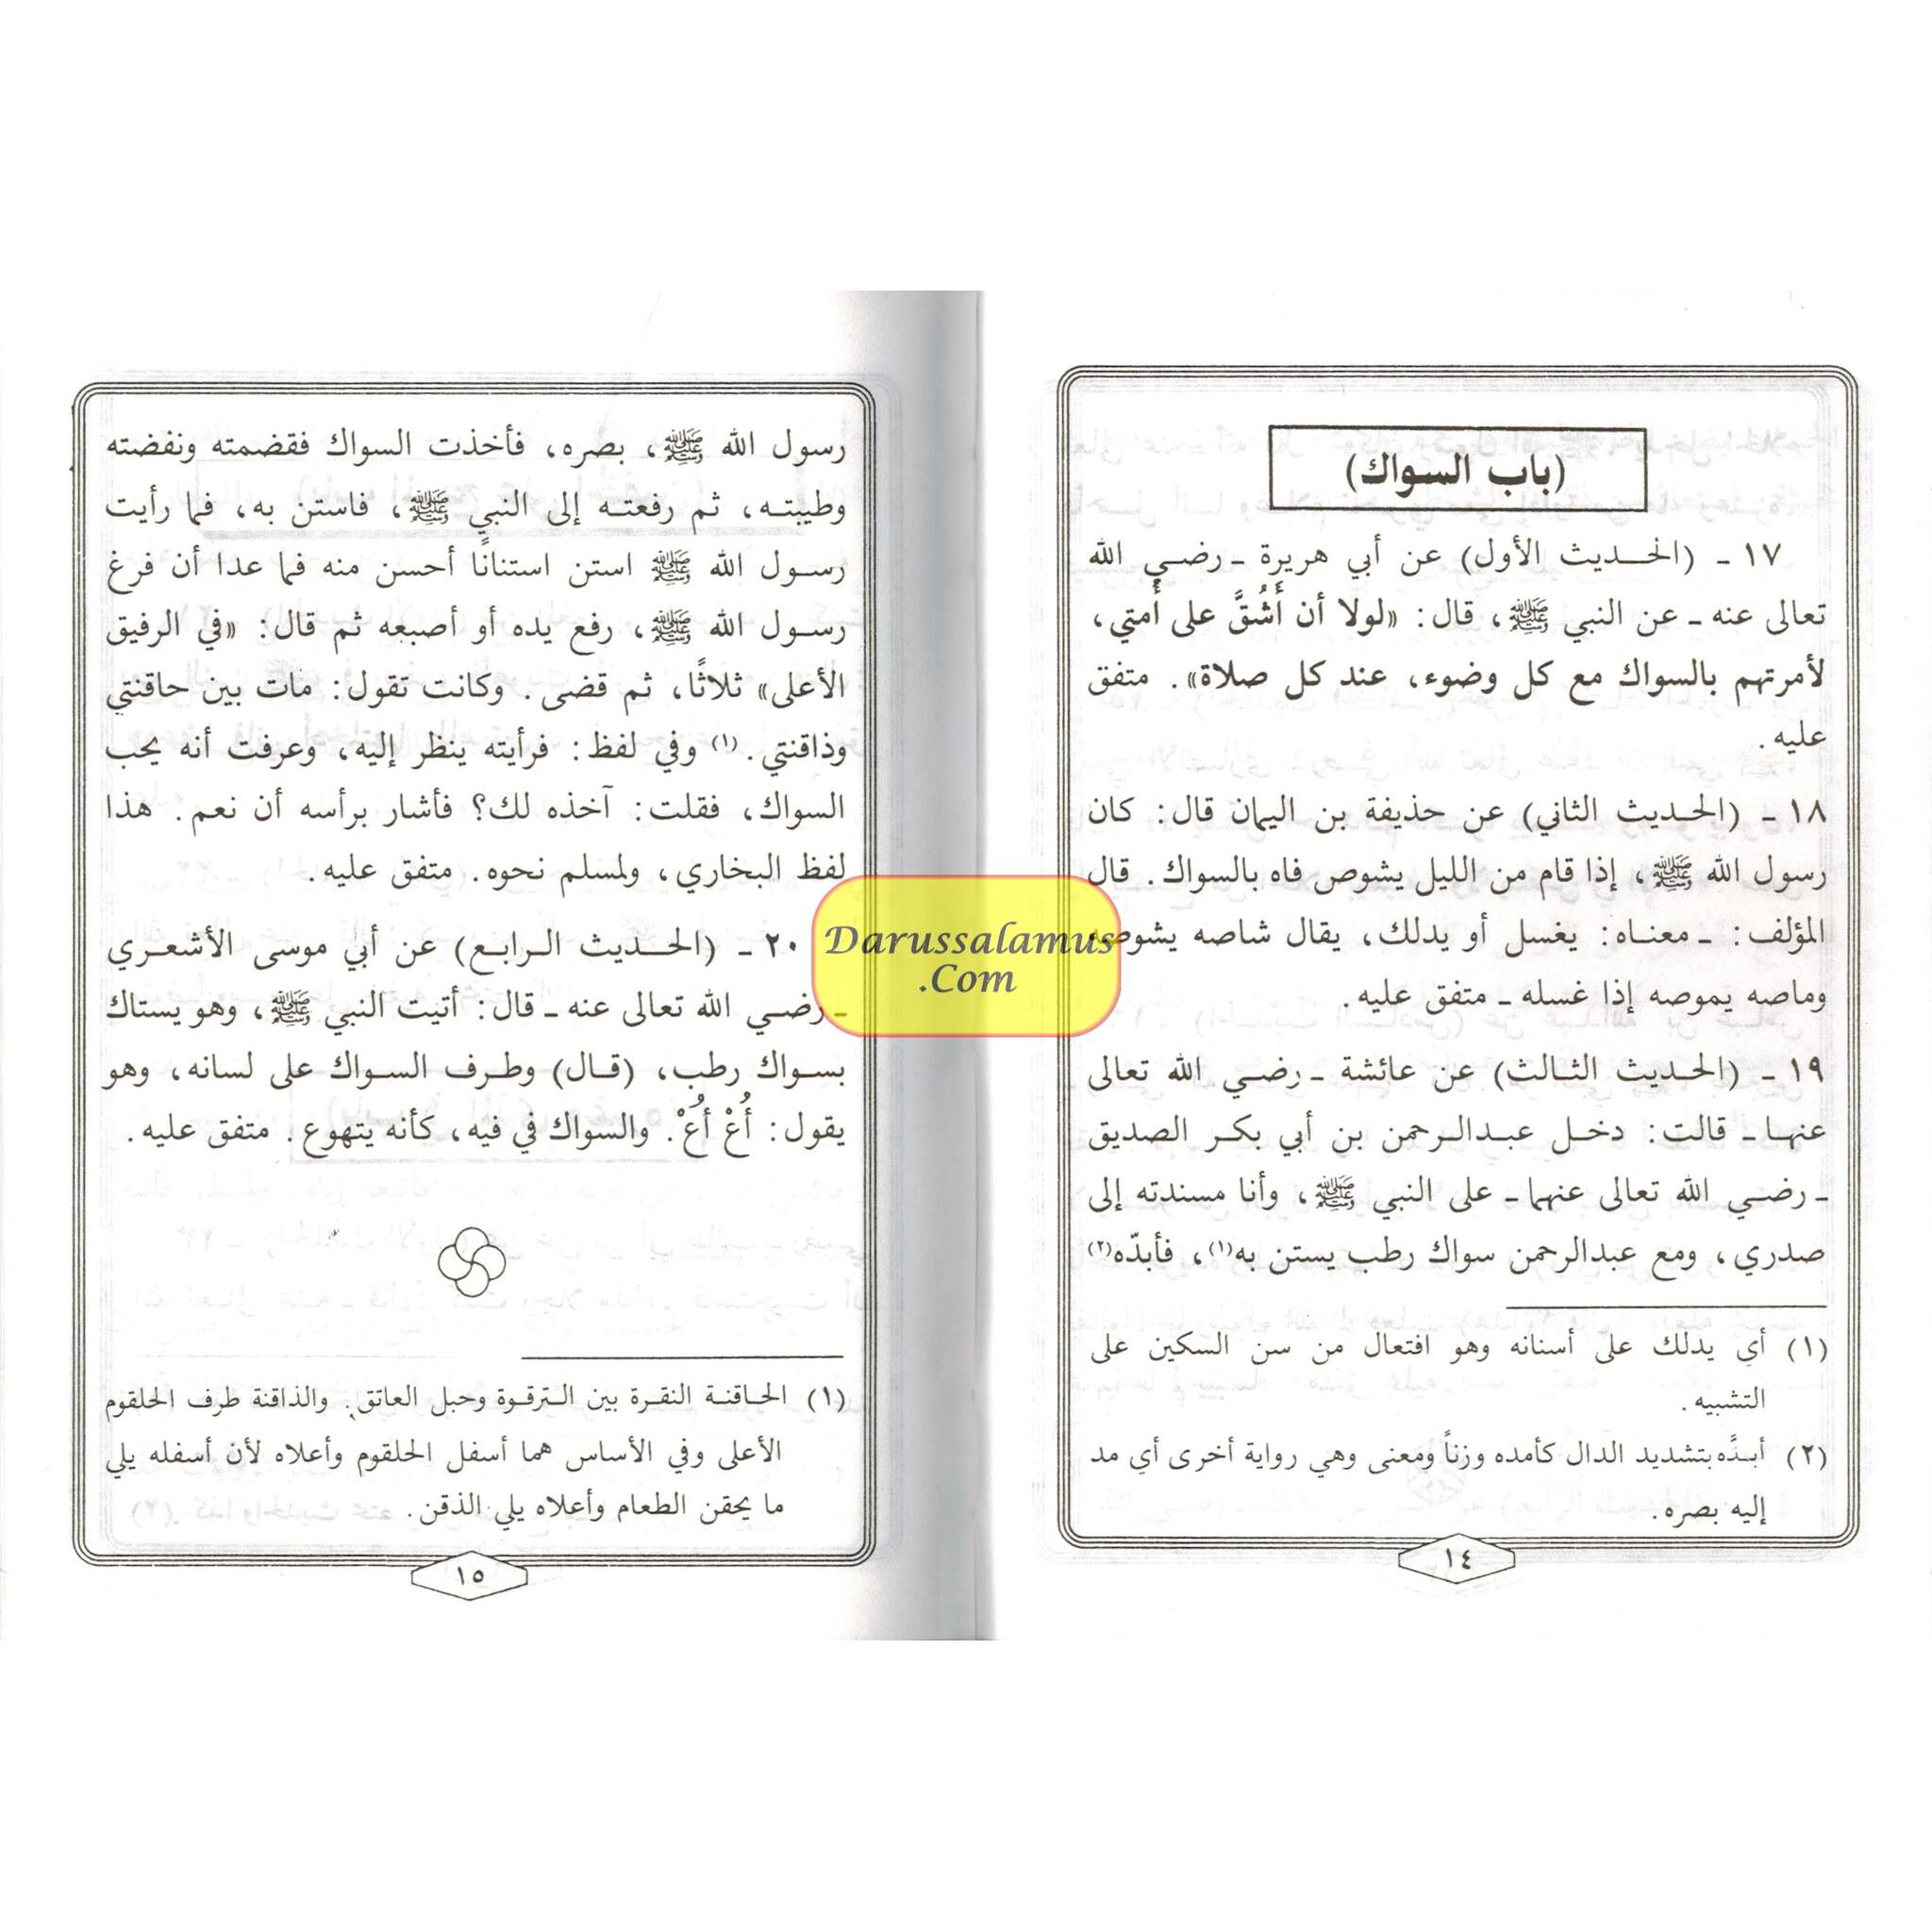 (باب السواك)
١٧ ـ (الحديث الأول) عن أبي هريرة ـ رضي الله
تعالى عنه ـ عن النبي ﷺ، قال: «لولا أن أَشُقَّ على أُمتي،
لأمرتهم بالسواك مع كل وضوء، عند كل صلاة». متفق
عليه.
١٨ ـ (الحديث الثاني) عن حذيفة بن اليمان قال: كان
رسول الله ﷺ، إذا قام من الليل يشوص فاه بالسواك. قال
المؤلف: ـ معناه: يغسل أو يدلك، يقال شاصه يشوصه
وماصه يموصه إذا غسله ـ متفق عليه.
١٩ ـ (الحديث الثالث) عن عائشة ـ رضي الله تعالى
عنها ـ قالت: دخل عبدالرحمن بن أبي بكر الصديق
ـ رضي الله تعالى عنهما ـ على النبي ﷺ، وأنا مسندته إلى
صدري، ومع عبدالرحمن سواك رطب يستن به(١)، فأبدّه(٢)
(١) أي يدلك على أسنانه وهو افتعال من سن السكين على
التشبيه.
(٢) أبدَّه بتشديد الدال كأمده وزناً ومعنى وهي رواية أخرى أي مد
إليه بصره.
١٤
رسول الله ﷺ، بصره، فأخذت السواك فقضمته ونفضته
وطيبته، ثم رفعته إلى النبي ﷺ، فاستن به، فما رأيت
رسول الله ﷺ استن استنانًا أحسن منه فما عدا أن فرغ
رسول الله ﷺ، رفع يده أو أصبعه ثم قال: «في الرفيق
الأعلى» ثلاثًا، ثم قضى. وكانت تقول: مات بين حاقنتي
وذاقنتي.(١) وفي لفظ: فرأيته ينظر إليه، وعرفت أنه يحب
السواك، فقلت: آخذه لك؟ فأشار برأسه أن نعم. هذا
لفظ البخاري، ولمسلم نحوه. متفق عليه.
٢٠ ـ (الحديث الرابع) عن أبي موسى الأشعري
ـ رضي الله تعالى عنه ـ قال: أتيت النبي ﷺ، وهو يستاك
بسواك رطب، (قال) وطرف السواك على لسانه، وهو
يقول: أُعْ أُعْ. والسواك في فيه، كأنه يتهوع. متفق عليه.
(١) الحاقنة النقرة بين الترقوة وحبل العاتق. والذاقنة طرف الحلقوم
الأعلى وفي الأساس هما أسفل الحلقوم وأعلاه لأن أسفله يلي
ما يحقن الطعام وأعلاه يلي الذقن.
١٥
Darussalamus
.Com